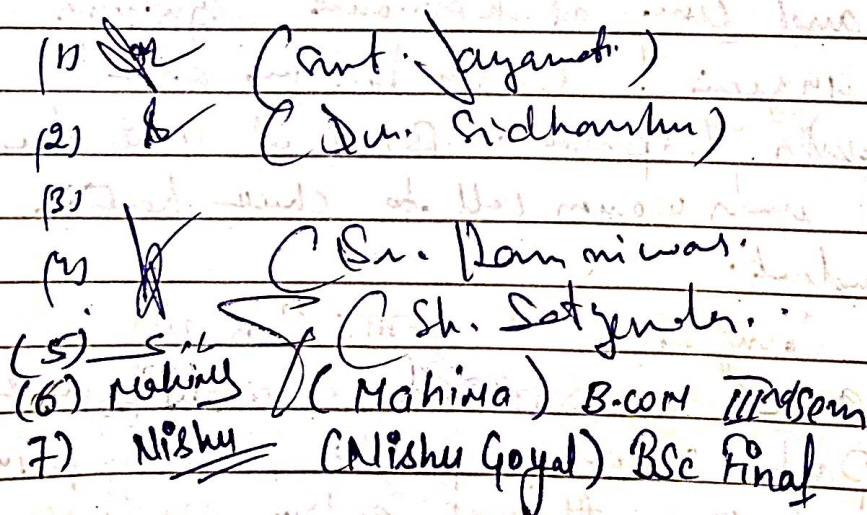 (1) (Smt. Jayamati.)
(2) (Dr. Sidhanshu)
(3)
(4) (Sr. Ramniwas.
(5) (Sh. Satyender.
(6) Mahima (MahiMa) B.COM IIIrdsem
7) Nishu (Nishu Goyal) BSc Final